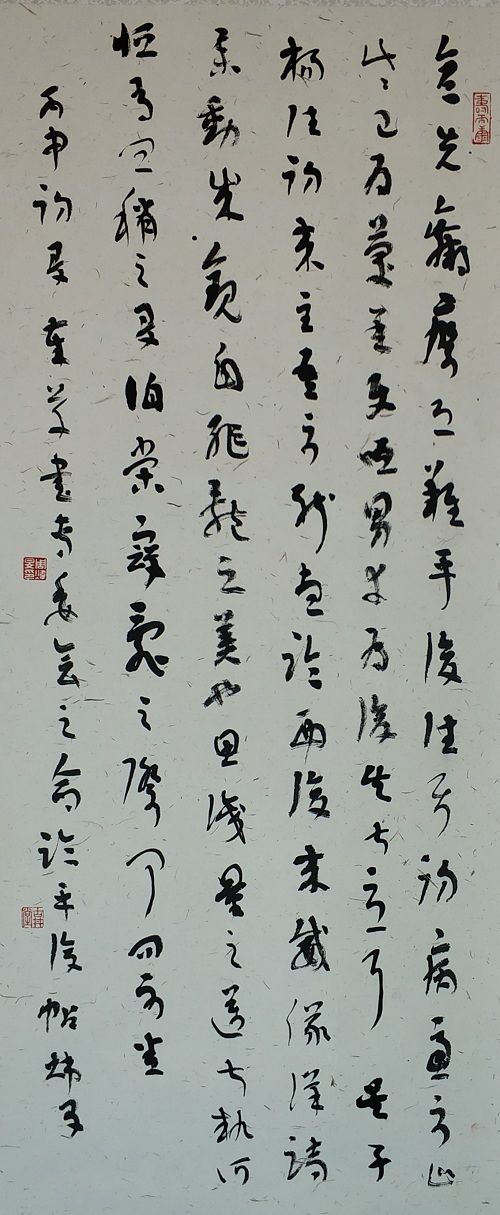 彦先羸瘵恐難平復往屬初病慮不止
此々已為慶承使唯男幸為復失前憂耳吳子
楊往初來主吾不能盡臨西復來威儀詳跱
舉動成觀自軀體之美也思識量之邁前執所
恒有宜稱之夏伯榮寇亂之際聞問不悉
丙申初夏奉草書專委會之命臨平復帖